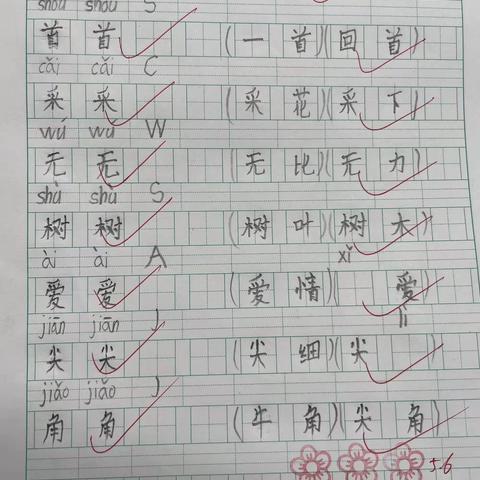 shǒu shǒu S
首 首 (一 首)(回 首)
cǎi cǎi C
采 采 (采 花)(采 下)
wú wú W
无 无 (无 比)(无 力)
shù shù S
树 树 (树 叶)(树 木)
ài ài A xǐ
爱 爱 (爱 情)( 爱)
jiān jiān J lì
尖 尖 (尖 细)(尖 )
jiǎo jiǎo J
角 角 (牛 角)(尖 角)
5.6